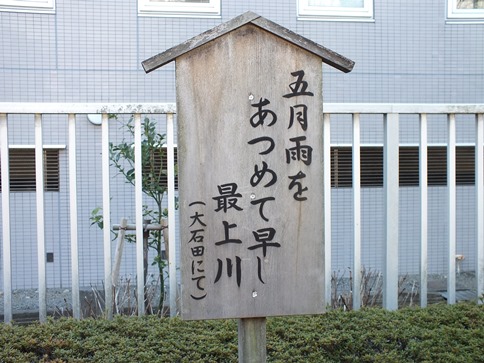 五月雨を
あつめて早し
最上川
(大石田にて)